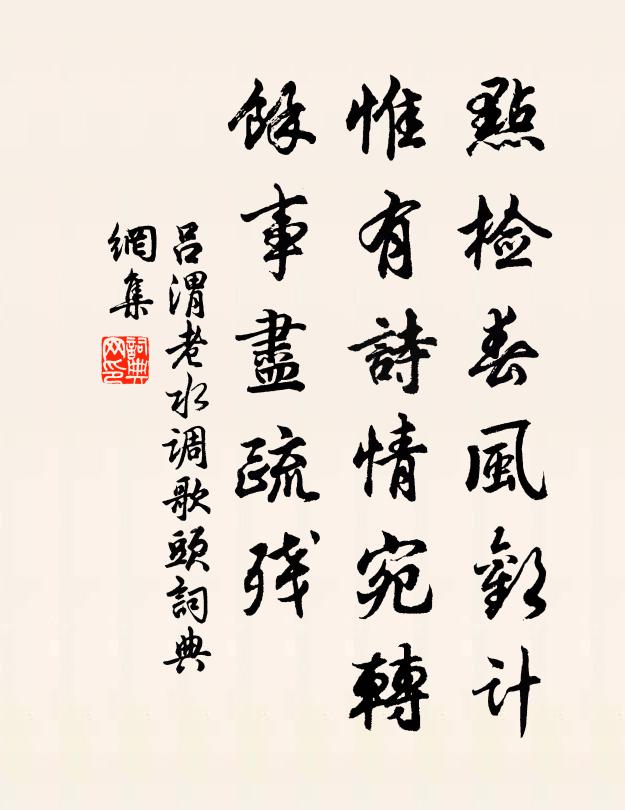 點檢春風歡計
惟有詩情宛轉
餘事盡疏殘
吕渭老水调歌頭詞典
網集
詞典
网印